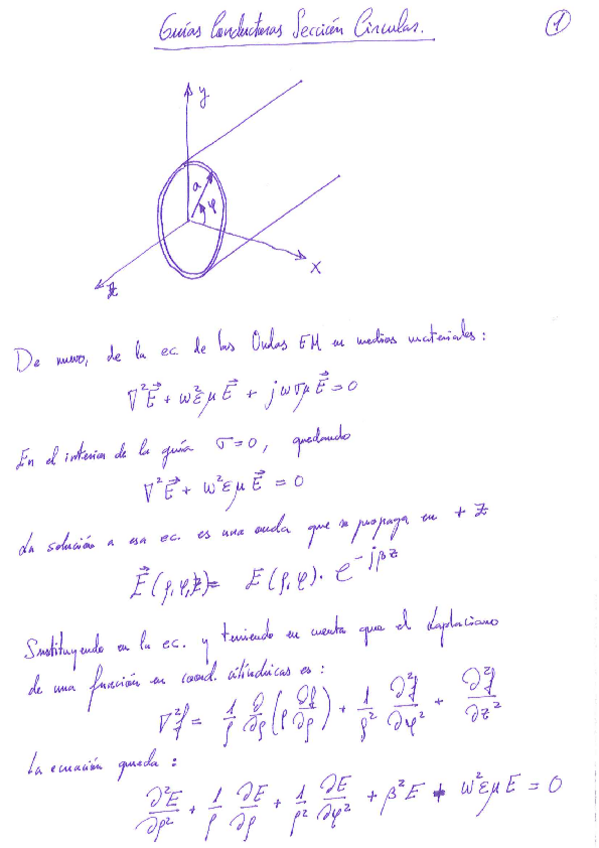 Guías Conductoras Sección Circular.
1
y
a
φ
x
z
De nuevo, de la ec. de las Ondas EM en medios materiales:
∇²E⃗ + ω²εμE⃗ + jωσμE⃗ = 0
En el interior de la guía σ=0, quedando
∇²E⃗ + ω²εμE⃗ = 0
La solución a esa ec. es una onda que se propaga en + z
E⃗(ρ,φ,z)= E(ρ,φ)· e^{-jβz}
Sustituyendo en la ec. y teniendo en cuenta que el Laplaciano
de una función en coord. cilíndricas es:
∇²f = 1/ρ ∂/∂ρ (ρ ∂f/∂ρ) + 1/ρ² ∂²f/∂φ² + ∂²f/∂z²
La ecuación queda:
∂²E/∂ρ² + 1/ρ ∂E/∂ρ + 1/ρ² ∂E/∂φ² + β²E + ω²εμE = 0